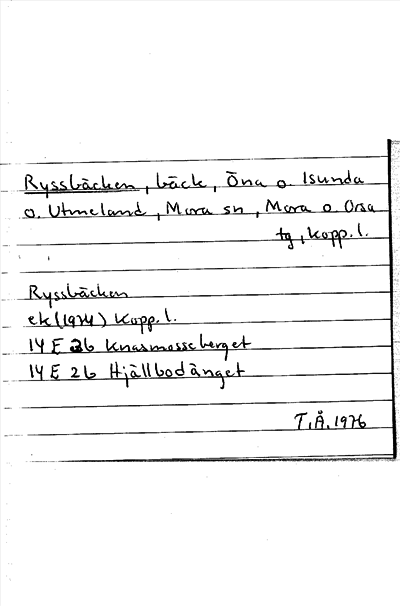 Ryssbäcken, bäck, Öna o. Isunda
o. Utmeland, Mora sn, Mora o Orsa
tg, Kopp. l.
Ryssbäcken
ek (1974) Kopp. l.
14 E 3b Knasmosseberget
14 E 2b Hjällbodänget
T.Å. 1976